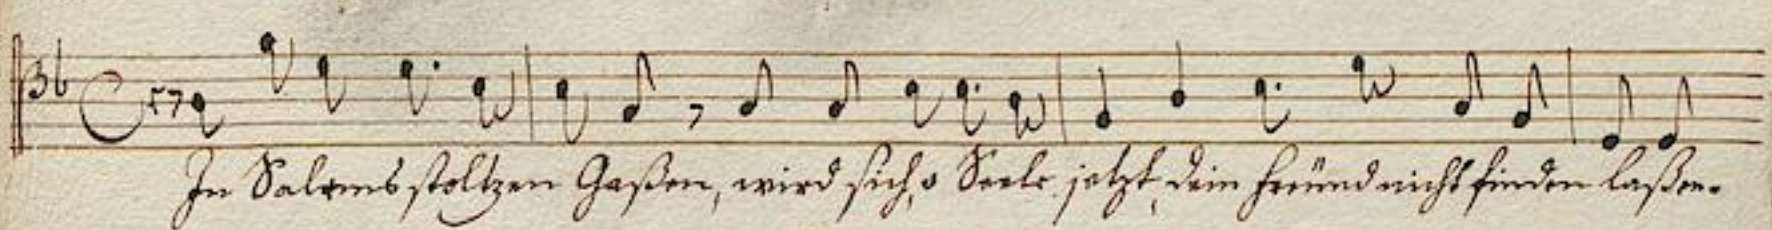 In Salems stoltzen Gaßen, wird sich, o Seele jetzt, dein freünd nicht finden laßen.